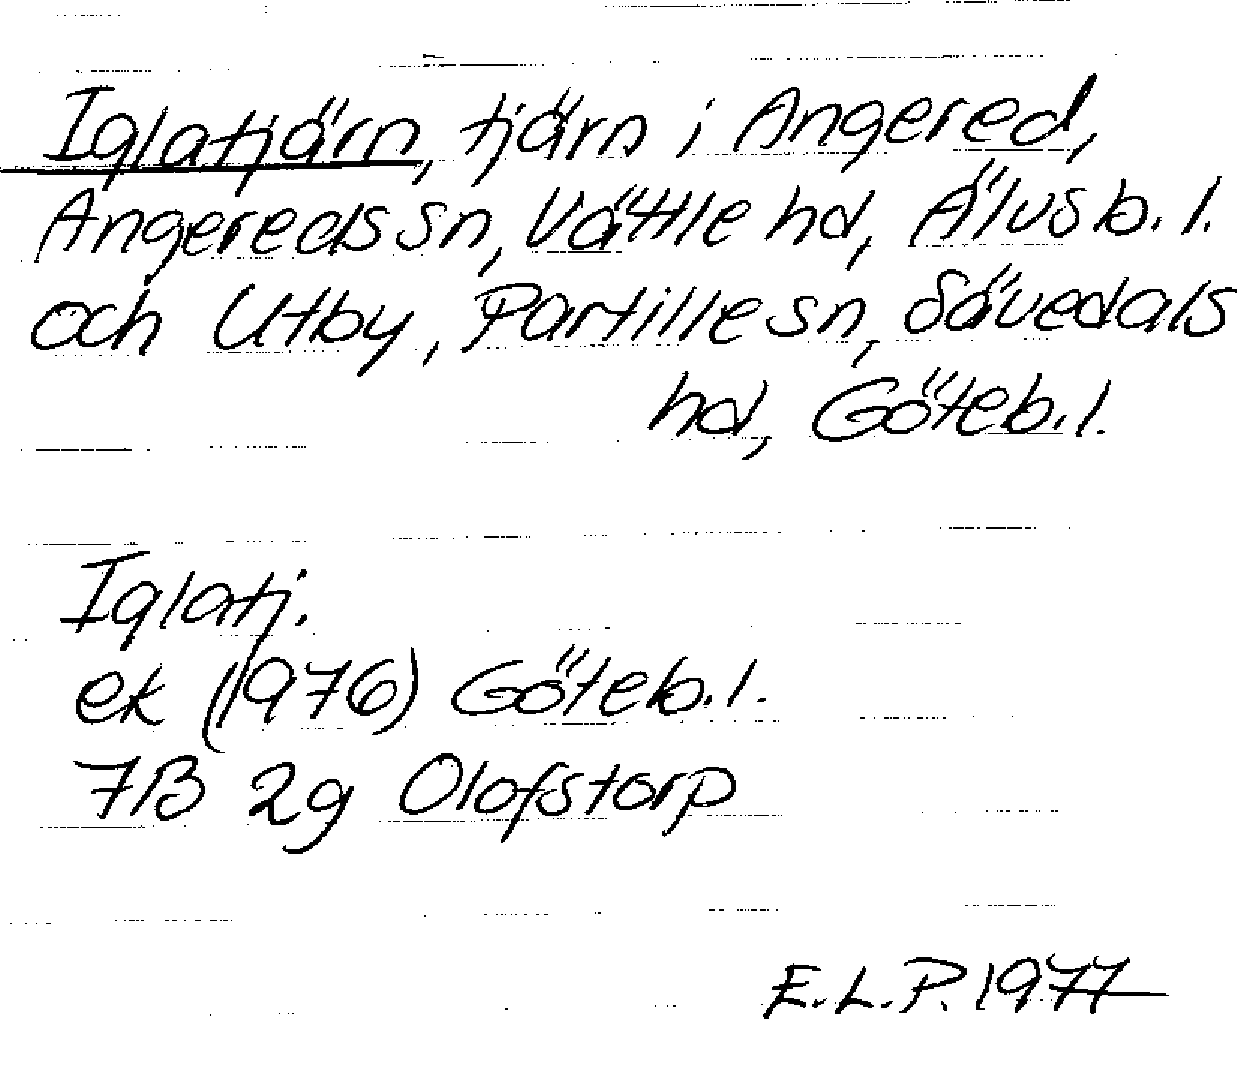 Iglatjärn, tjärn i Angered,
Angereds sn, Vättle hd, Älvsb. l.
och Utby, Partille sn, Sävedals
hd, Göteb. l.
Iglatj.
ek (1976) Göteb. l.
7B 2g Olofstorp
E.L.P. 1977